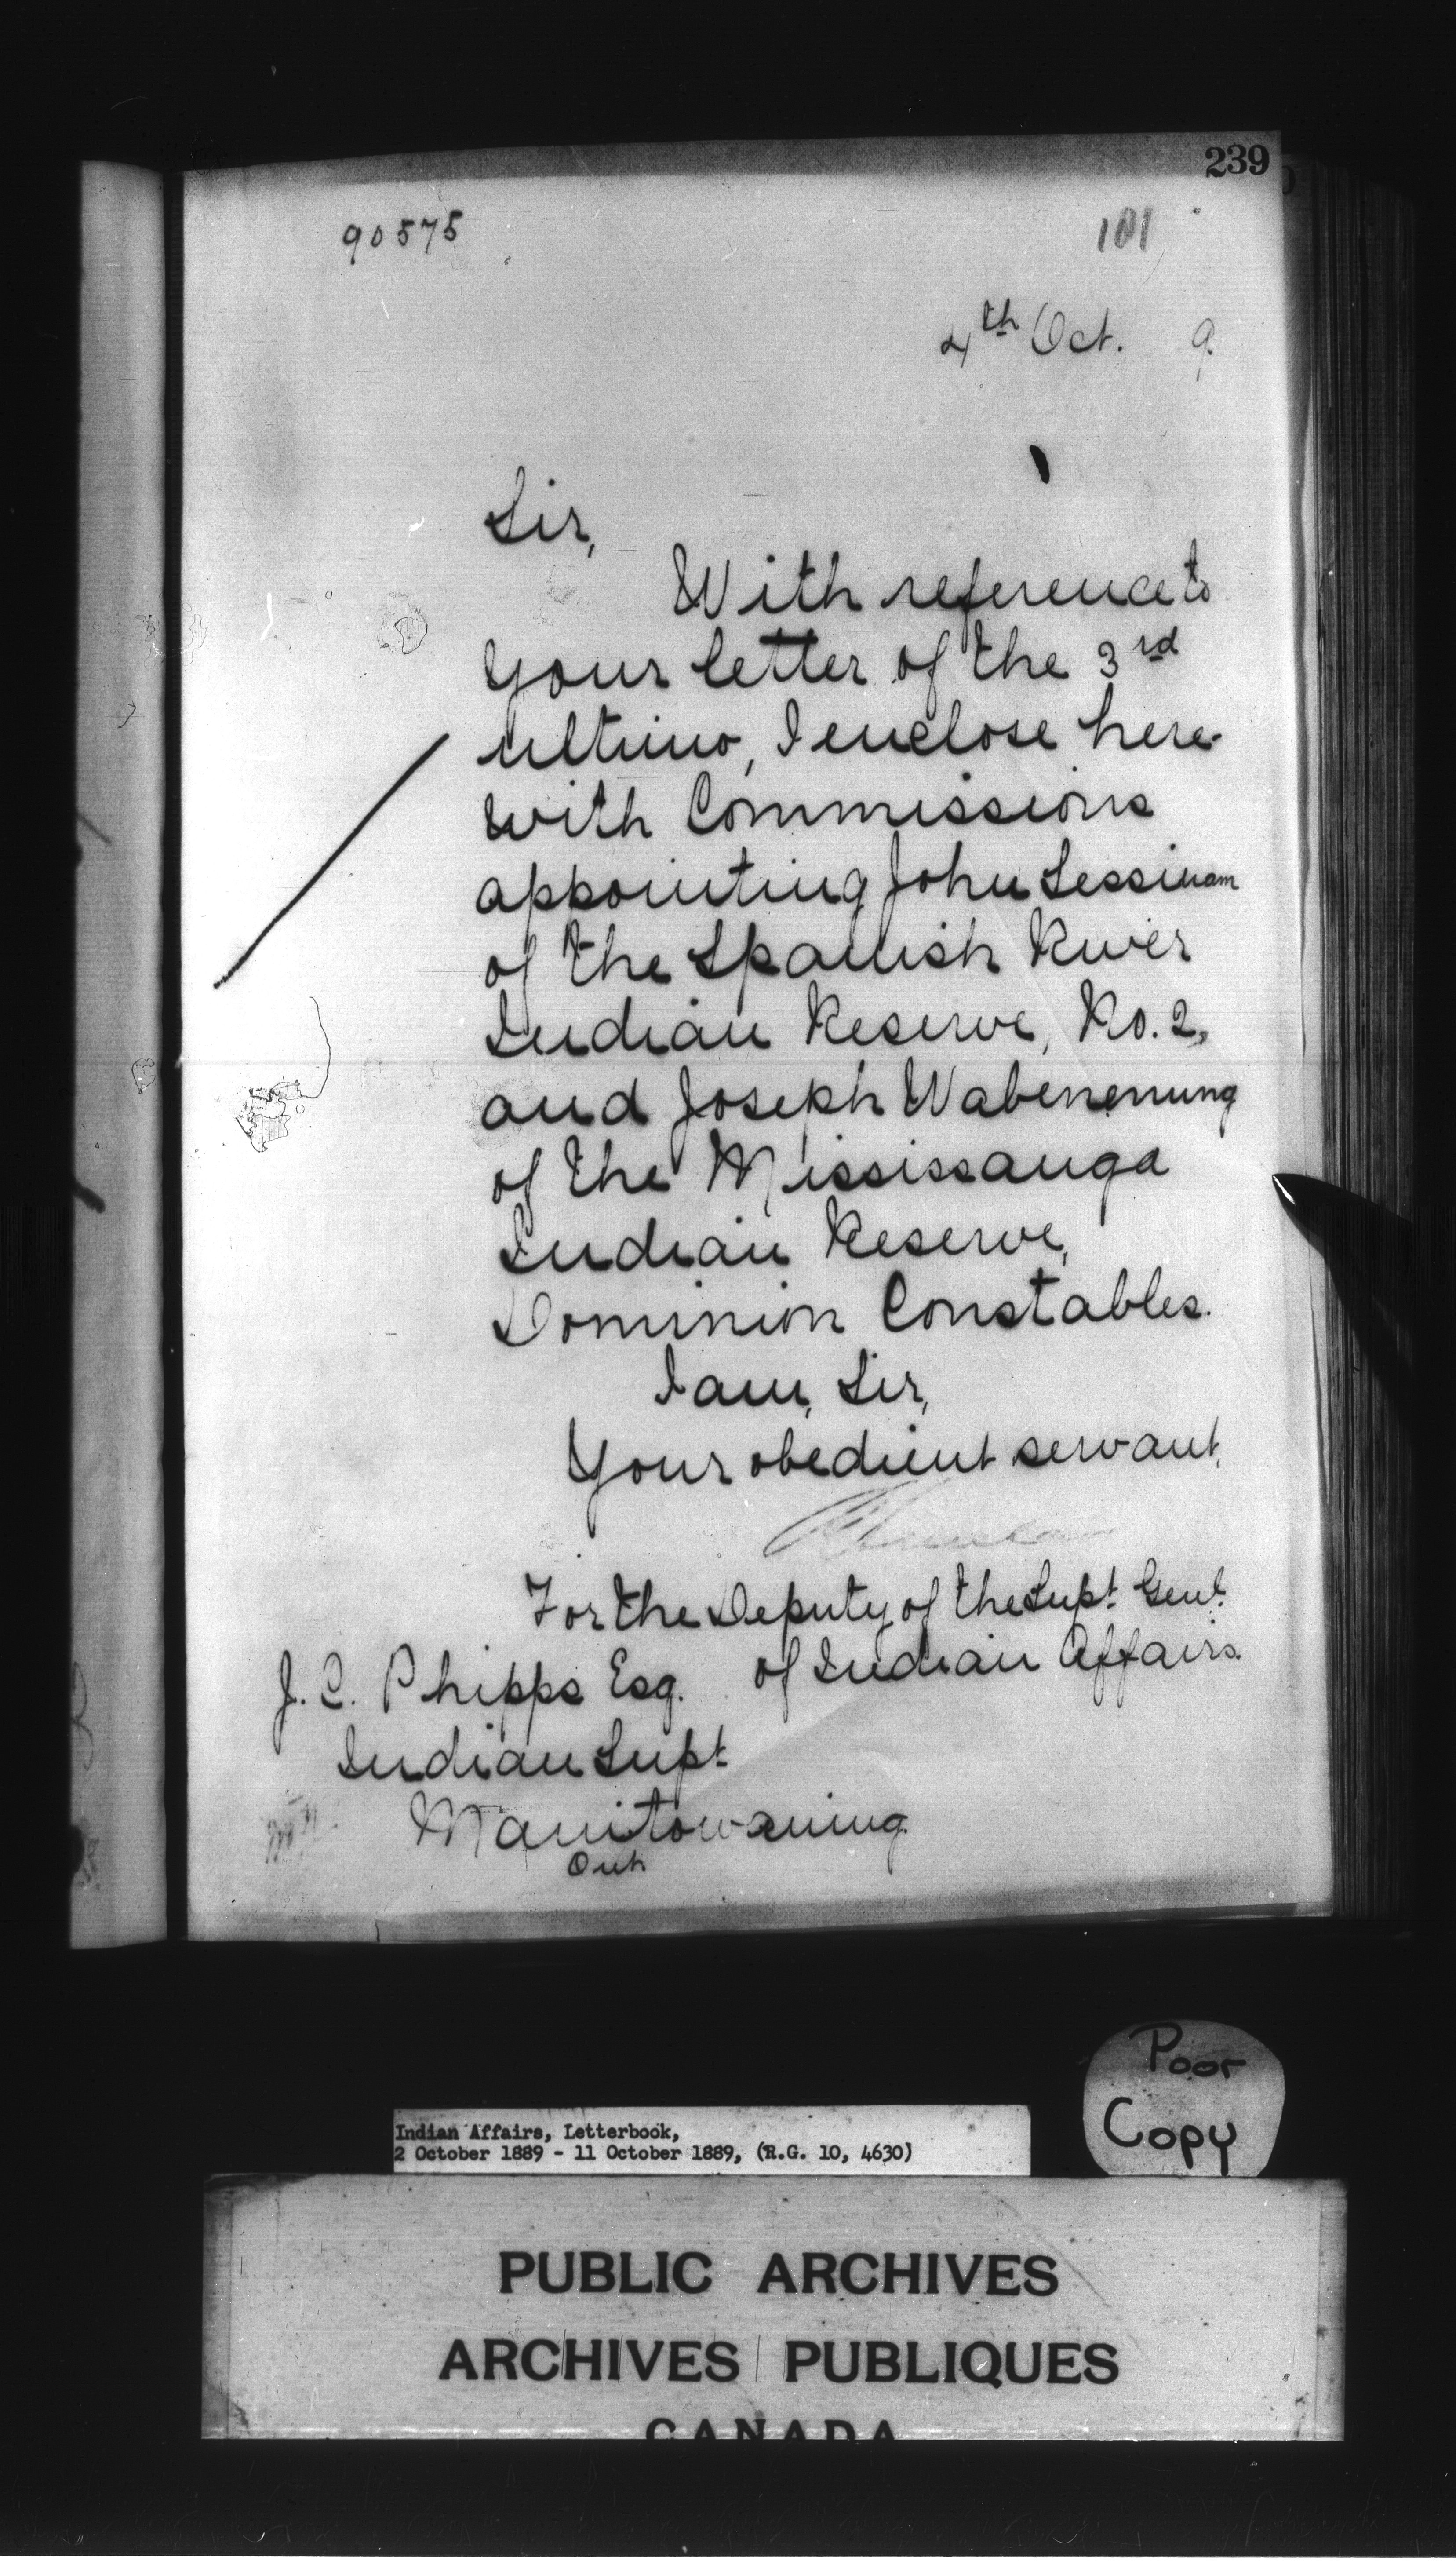 239
90575
101
4th Oct. 9.
Sir,
With reference to
your letter of the 3rd
ultimo, I enclose here-
with Commissions
appointing John Sessinam
of the Spanish River
Indian Reserve, No. 2,
and Joseph Wabenenung
of the Mississauga
Indian Reserve,
Dominion Constables.
I am, Sir,
Your obedient servant,
For the Deputy of the Supt. Genl.
of Indian Affairs.
J. C. Phipps Esq.
Indian Supt
Manitowaning
Ont
Poor
Copy
Indian Affairs, Letterbook,
2 October 1889 - 11 October 1889, (R.G. 10, 4630)
PUBLIC ARCHIVES
ARCHIVES PUBLIQUES
CANADA